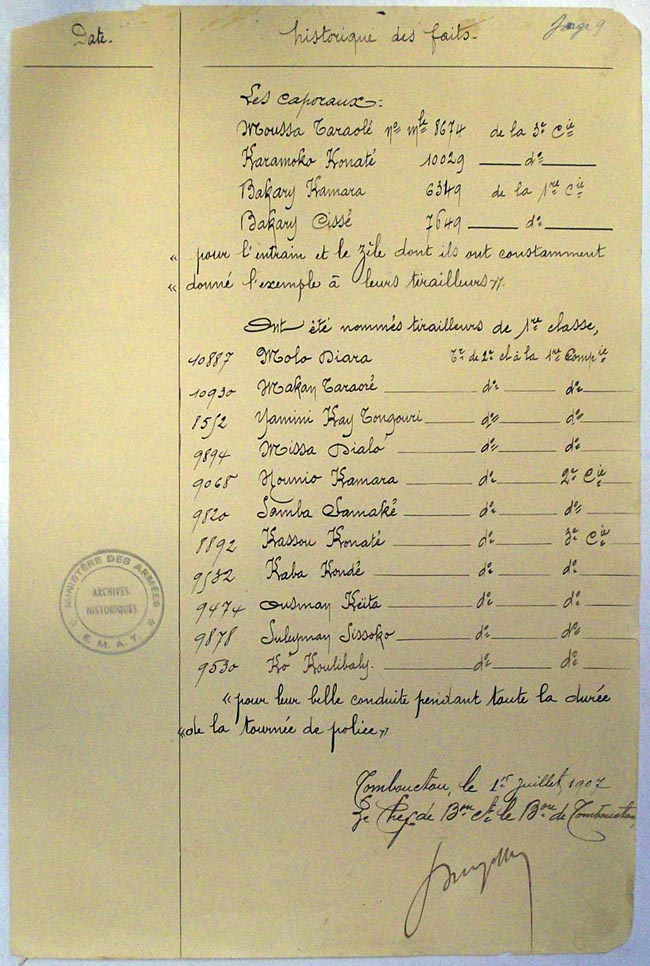 Date.
historique des faits.
page 9
Les caporaux:
Moussa Taraolé no mle 8674 de la 3e Cie
Karamoko Konaté 10029 do
Bakary Kamara 6349 de la 1re Cie
Bakary Cissé 7649 do
« pour l'entrain et le zèle dont ils ont constamment
« donné l'exemple à leurs tirailleurs».
Ont été nommés tirailleurs de 1re classe,
10887 Molo Diara Tr de 2e cl à la 1re Compie
10930 Makan Taraoré do do
8552 Yamini Kay Tongouri do do
9894 Missa Dialo do do
9068 Hounio Kamara do 2e Cie
9820 Samba Samaké do do
8892 Kassou Konaté do 3e Cie
9532 Kaba Kondé do do
9474 Ousman Keïta do do
9878 Suleyman Sissoko do do
9530 Ko Koulibaly. do do
«pour leur belle conduite pendant toute la durée
«de la tournée de police»
Tombouctou, le 1er juillet 1907
Le Chef de Bon ct le Bon de Tombouctou,
MINISTÈRE DES ARMÉES
ARCHIVES
HISTORIQUES
E.M.A.T.